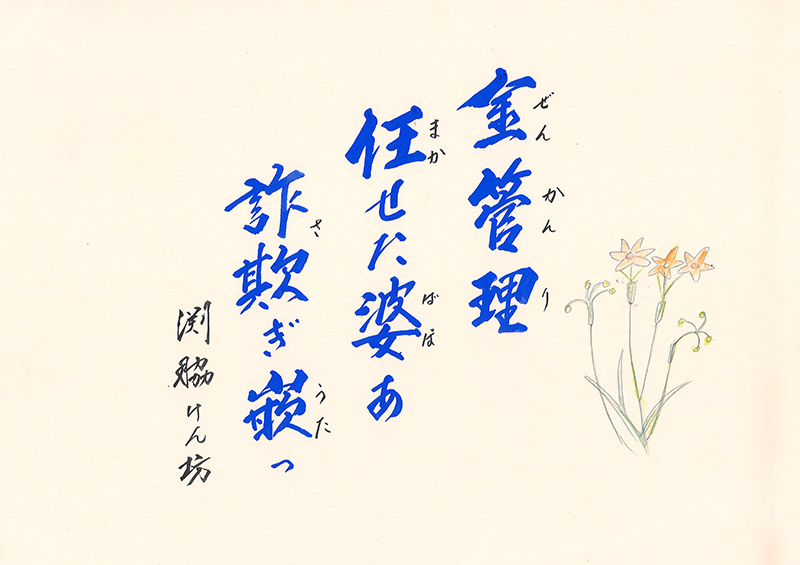 金管理
ぜんかんり
任せた婆あ
まか ばぼ
詐欺ぎ嵌っ
さ うた
渕脇けん坊